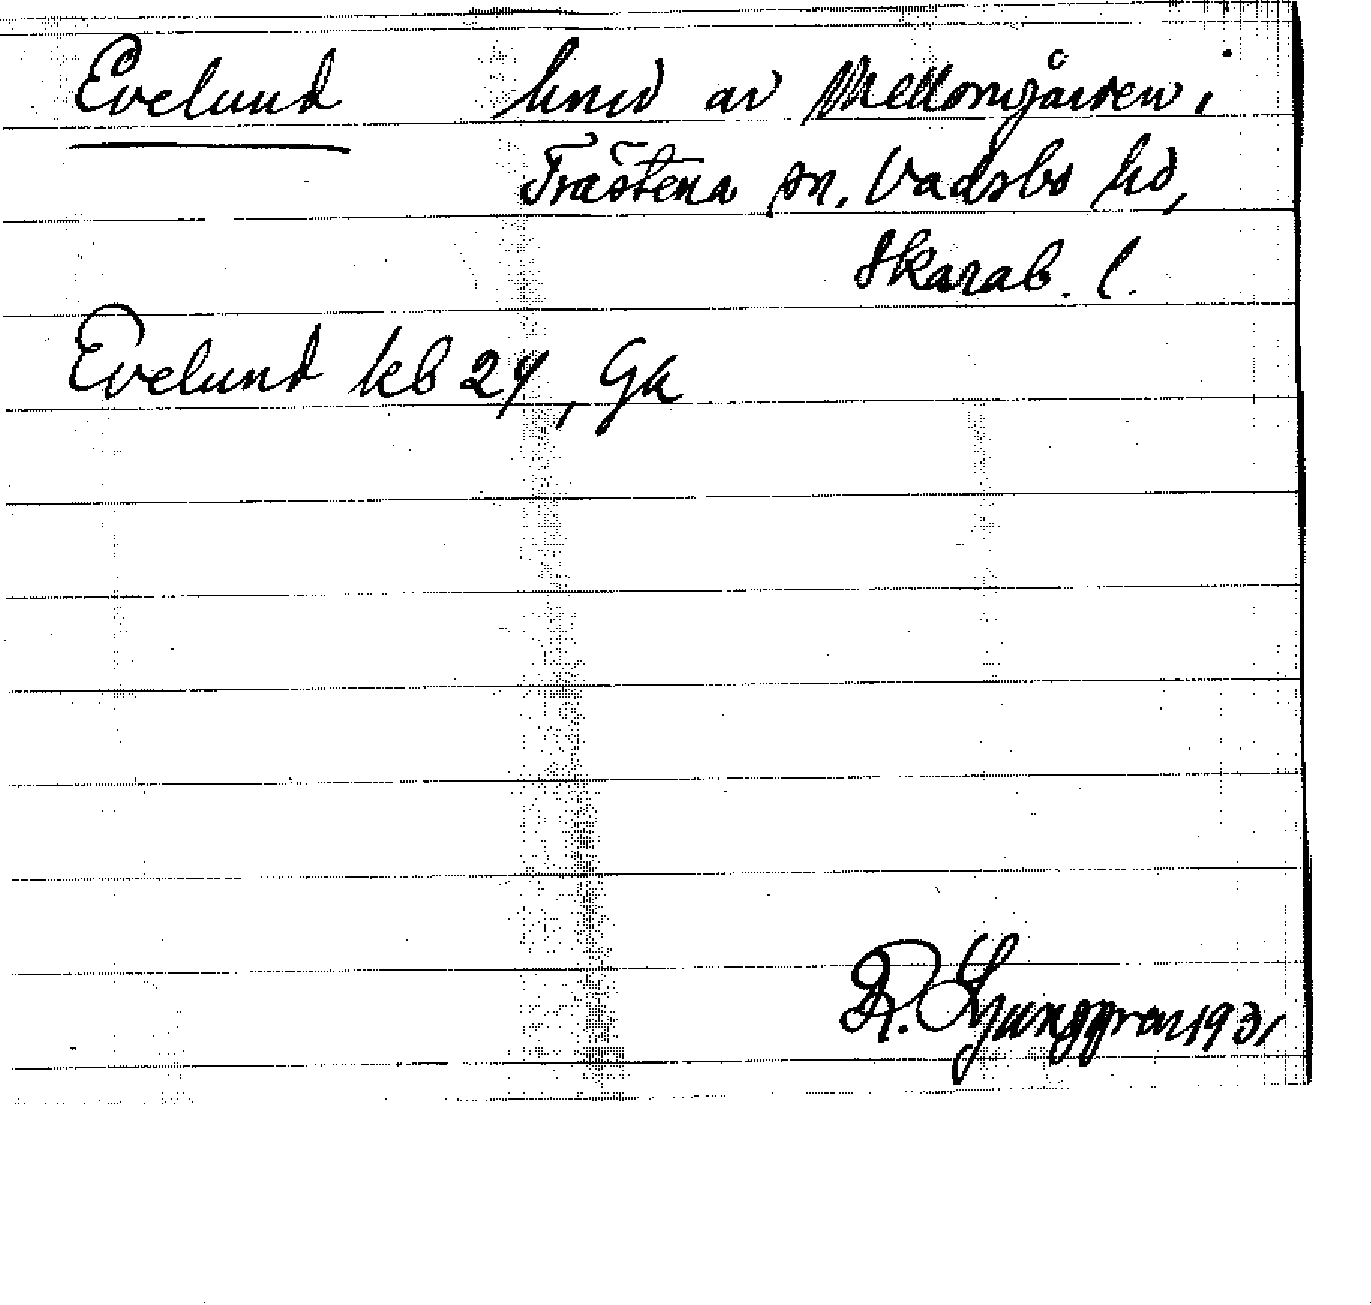 Evelund hmd av Mellomgården i
Trästena sn, Vadsbo hd,
Skarab. l.
Evelund kb 24, Ga
R. Ljunggren 1931